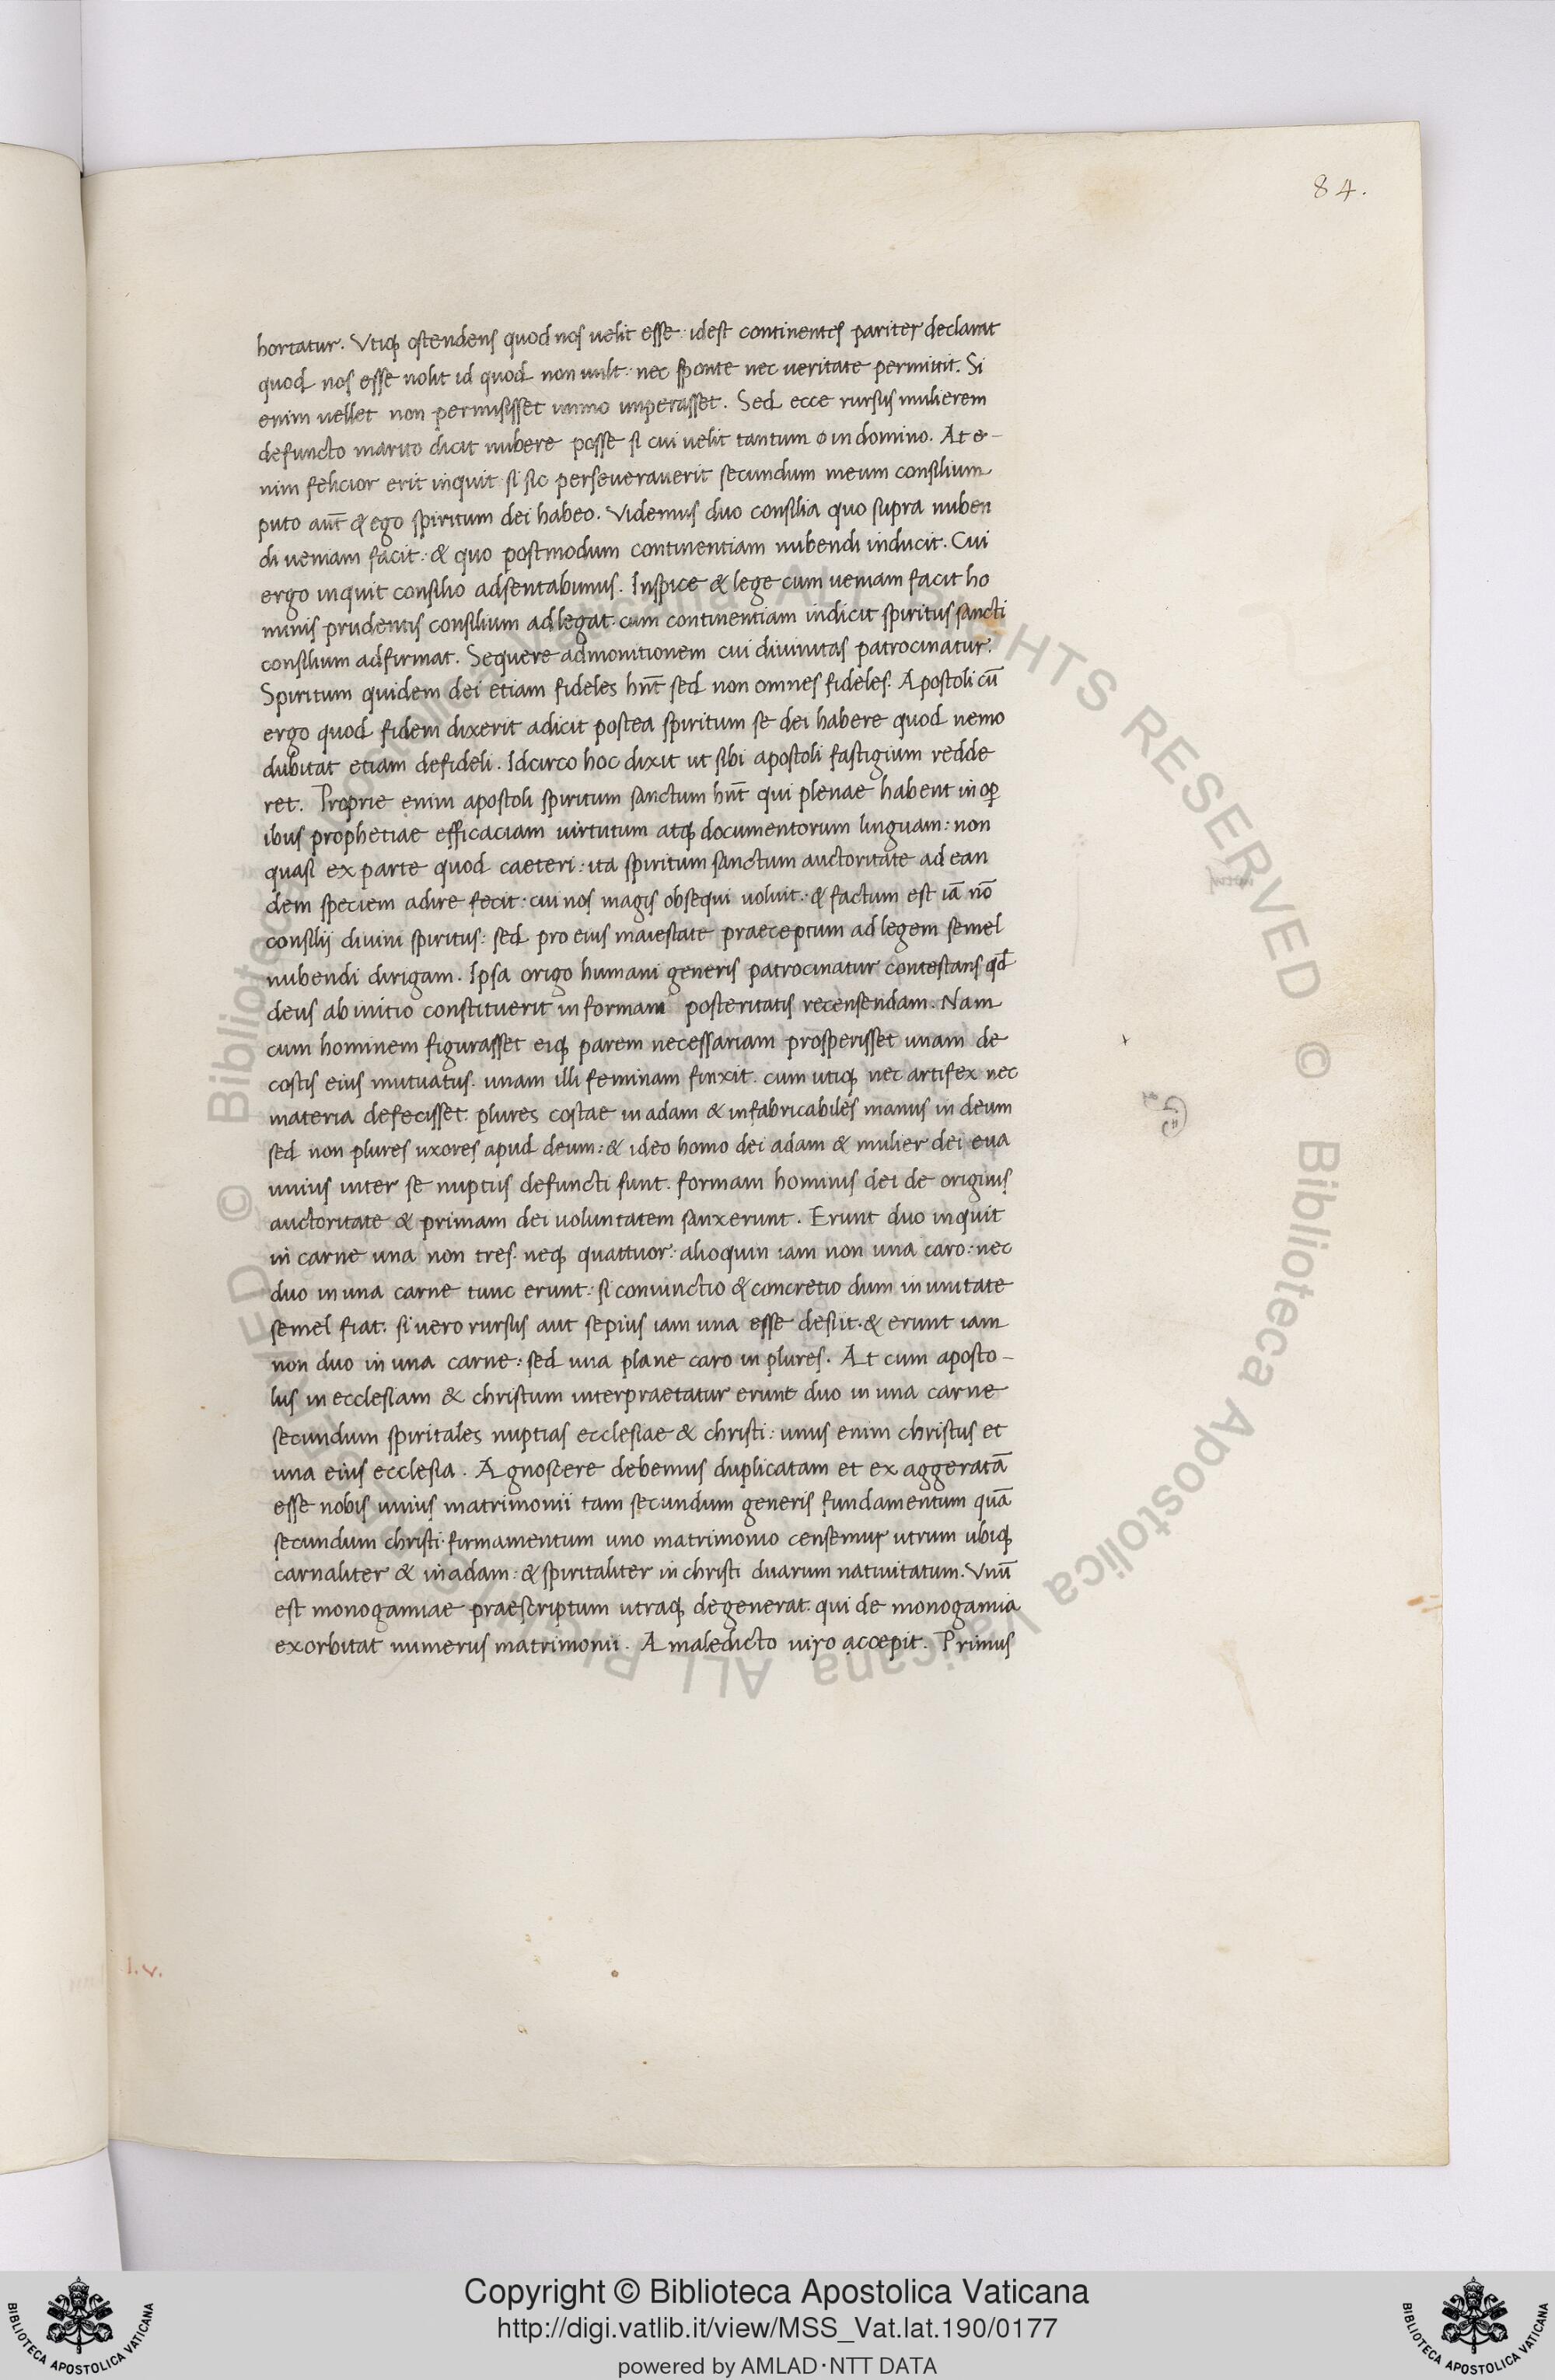 84.
hortatur. Vtiq ostendens quod nos uelit esse: idest continentes pariter declarat
quod nos esse nolit id quod non uult: nec sponte nec ueritate permittit. Si
enim uellet non permisisset immo imperasset. Sed ecce rursus mulierem
defuncto marito dicit nubere posse si cui uelit tantum o in domino. At e-
nim felicior erit inquit si sic perseuerauerit secundum meum consilium
puto aut̄ & ego spiritum dei habeo. Videmus duo consilia quo supra nuben
di ueniam facit: & quo postmodum continentiam nubendi inducit. Cui
ergo inquit consilio adsentabimus. Inspice & lege cum ueniam facit ho
minis prudentis consilium adlegat. cum continentiam indicit spiritus sancti
consilium adfirmat. Sequere admonitionem cui diuinitas patrocinatur.
Spiritum quidem dei etiam fideles hn̄t sed non omnes fideles. Apostoli cū
ergo quod fidem dixerit adicit postea spiritum se dei habere quod nemo
dubitat etiam defideli. Idcirco hoc dixit ut sibi apostoli fastigium redde
ret. Proprie enim apostoli spiritum sanctum hn̄t qui plenae habent in oꝑ
ibus prophetiae efficaciam uirtutum atq documentorum linguam: non
quasi ex parte quod caeteri: ita spiritum sanctum auctoritate ad ean
dem speciem adire fecit: cui nos magis obsequi uoluit: & factum est iā nō
consilij diuini spiritus: sed pro eius maiestate praeceptum ad legem semel
nubendi dirigam. Ipsa origo humani generis patrocinatur contestans qd̄
deus ab initio constituerit in formam posteritatis recensendam. Nam
cum hominem figurasset eiq parem necessariam prosperisset unam de
costis eius mutuatus. unam illi feminam finxit. cum utiq nec artifex nec
materia defecisset. plures costae in adam & infabricabiles manus in deum
sed non plures uxores apud deum: & ideo homo dei adam & mulier dei eua
unius inter se nuptiis defuncti sunt. formam hominis dei de originis
auctoritate & primam dei uoluntatem sanxerunt. Erunt duo inquit
in carne una non tres. neq quattuor: alioquin iam non una caro: nec
duo in una carne tunc erunt: si coniunctio & concretio dum in unitate
semel fiat. si uero rursus aut sepius iam una esse desiit. & erunt iam
non duo in una carne: sed una plane caro in plures. At cum aposto-
lus in ecclesiam & christum interpraetatur erunt duo in una carne
secundum spiritales nuptias ecclesiae & christi: unus enim christus et
una eius ecclesia. Agnoscere debemus duplicatam et ex aggeratā
esse nobis unius matrimonii tam secundum generis fundamentum quā
secundum christi firmamentum uno matrimonio censemur utrum ubiq
carnaliter & in adam: & spiritaliter in christi duarum natiuitatum. Vnū
est monogamiae praescriptum utraq degenerat. qui de monogamia
exorbitat numerus matrimonii. A maledicto uiro accepit. Primus
I.V.
© Biblioteca Apostolica Vaticana ALL RIGHTS RESERVED © Biblioteca Apostolica Vaticana ALL RIGHTS RESERVED
BIBLIOTECA APOSTOLICA VATICANA
Copyright © Biblioteca Apostolica Vaticana
http://digi.vatlib.it/view/MSS_Vat.lat.190/0177
powered by AMLAD·NTT DATA
BIBLIOTECA APOSTOLICA VATICANA